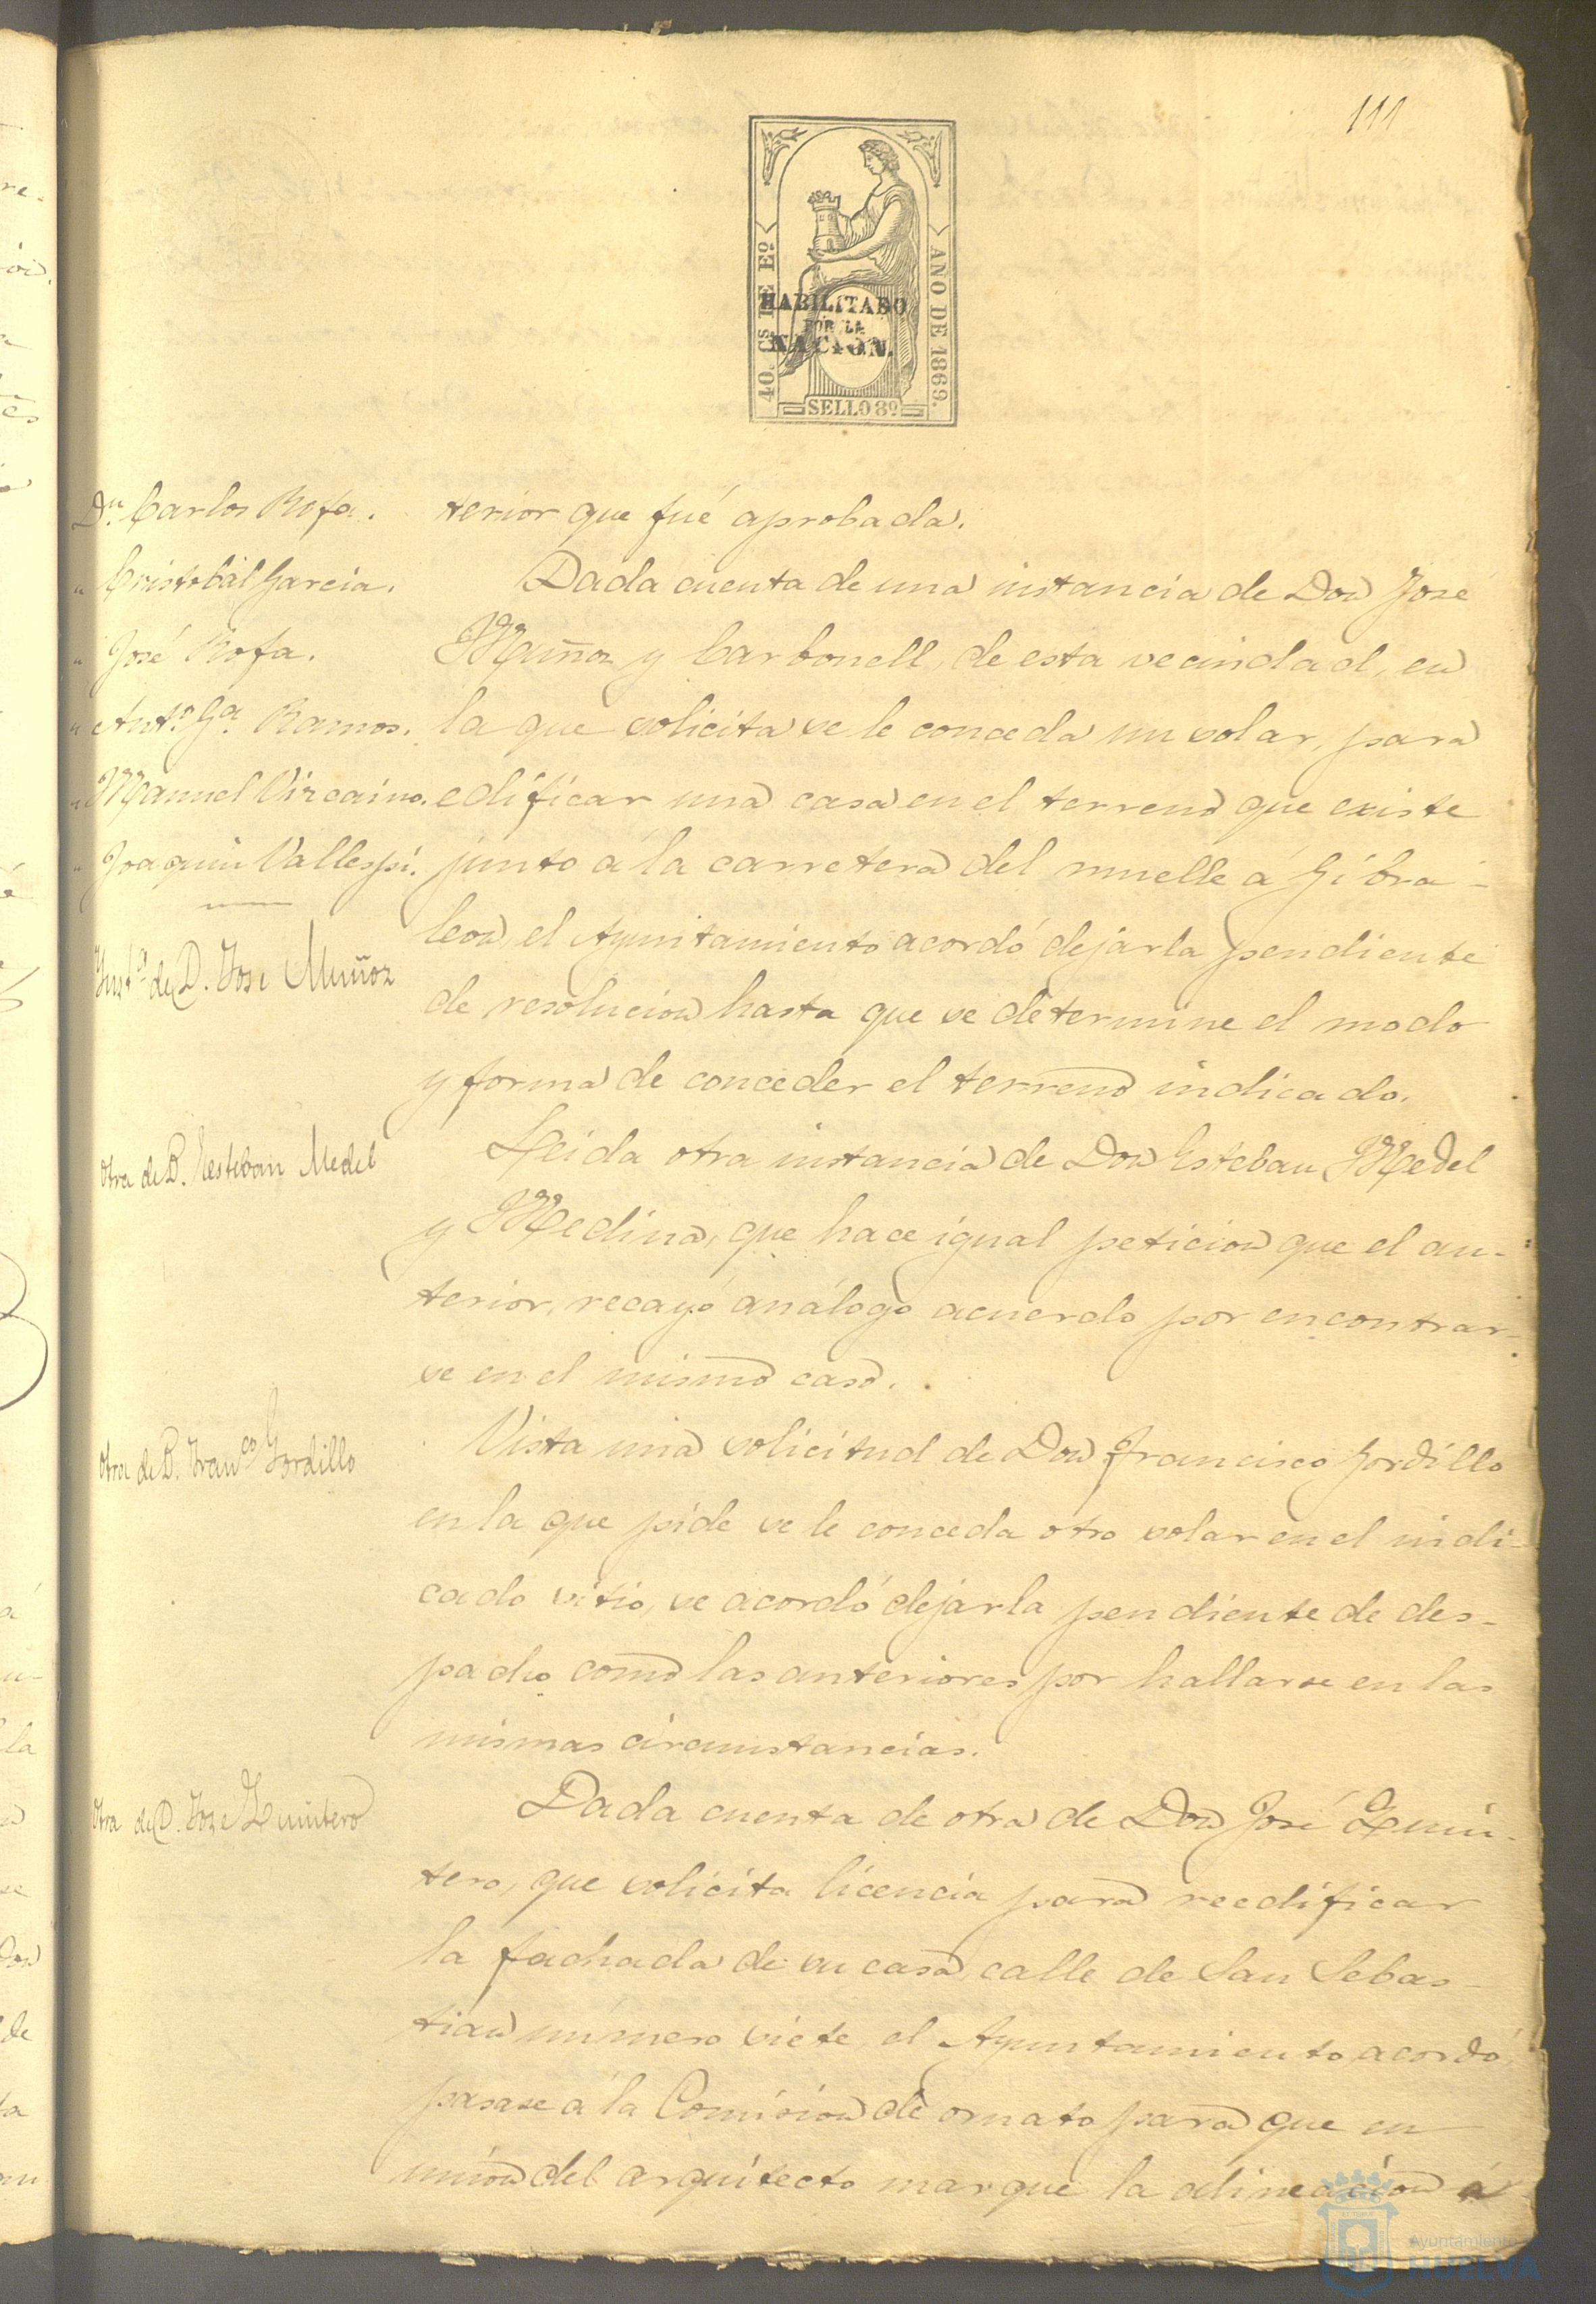 111
40. Cs DE Eº
AÑO DE 1869.
HABILITADO
POR LA
NACION.
SELLO 8º
Dn. Carlos Rofa.
" Cristobal Garcia.
" José Rofa.
" Antº. Gª. Ramos.
" Manuel Vizcaino.
" Joaquin Vallespi.
Instª de D. Jose Muñoz
Otra de D. Esteban Medel
Otra de D. Francº Gordillo
Otra de D. Jose Quintero
terior que fué aprobada.
Dada cuenta de una instancia de Don José
Muñoz y Carbonell, de esta vecindad, en
la que solicita se le conceda un solar, para
edificar una casa en el terreno que existe
junto á la carretera del muelle á Gibra-
leon, el Ayuntamiento acordó dejarla pendiente
de resolucion hasta que se determine el modo
y forma de conceder el terreno indicado.
Leida otra instancia de Don Esteban Medel
y Medina, que hace igual peticion que el an-
terior, recayó análogo acuerdo por encontrar-
se en el mismo caso.
Vista una solicitud de Don Francisco Gordillo
en la que pide se le conceda otro solar en el indi-
cado sitio, se acordó dejarla pendiente de des-
pacho como las anteriores por hallarse en las
mismas circunstancias.
Dada cuenta de otra de Don José Quin-
tero, que solicita licencia para reedificar
la fachada de su casa, calle de San Sebas-
tian número siete, el Ayuntamiento acordó,
pasase á la Comision de ornato para que en
union del arquitecto marque la alineacion á
Ayuntamiento
HUELVA